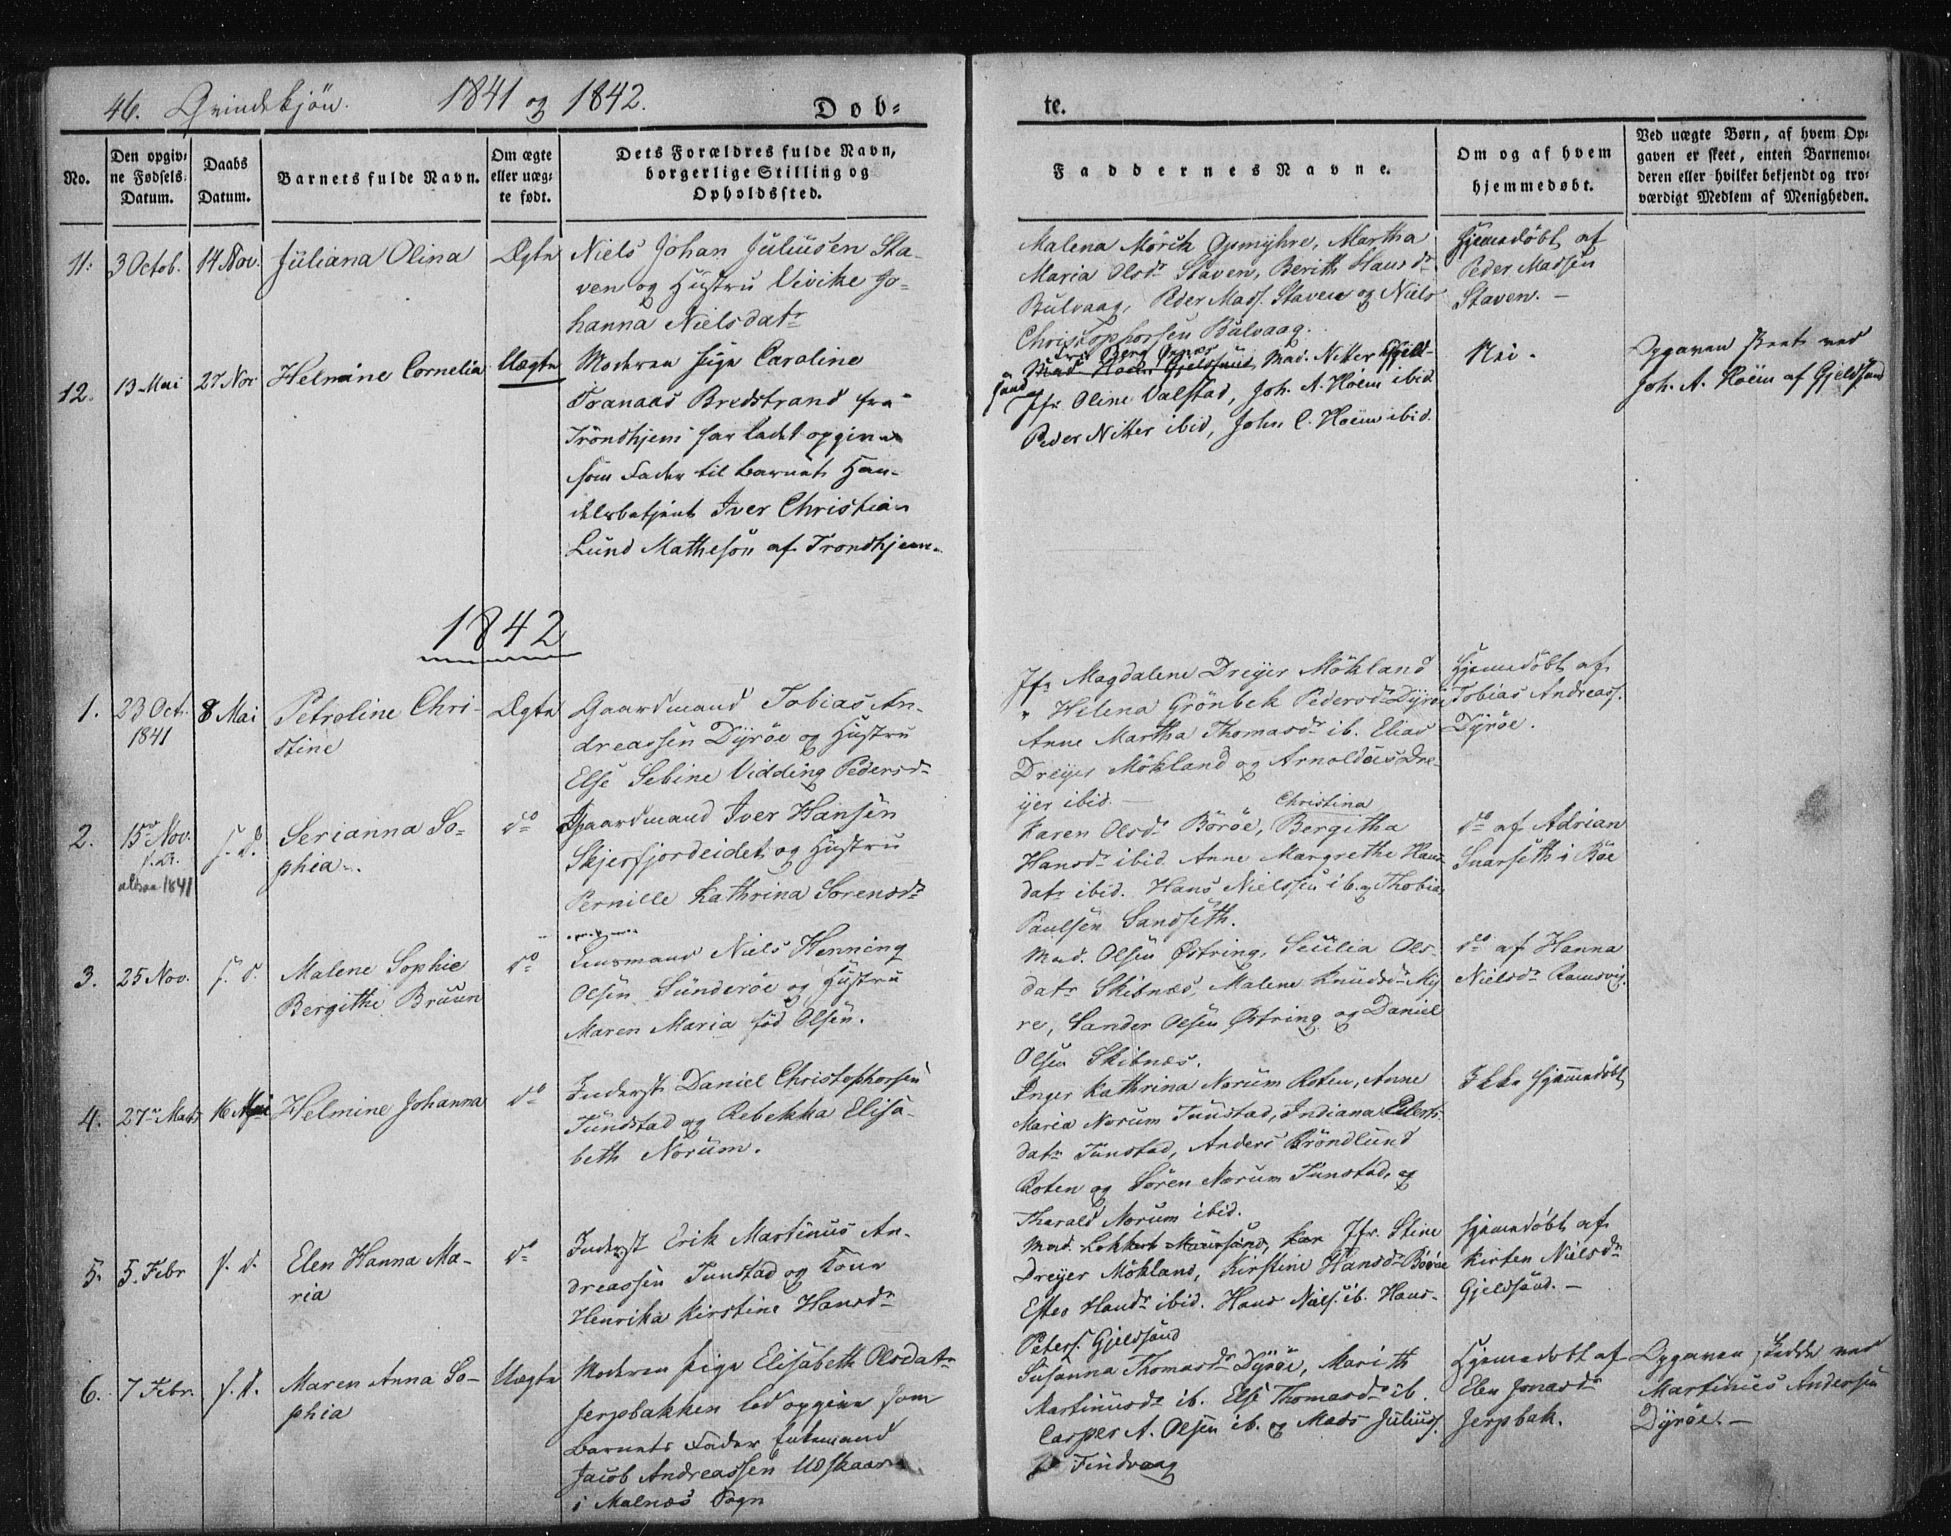 46. Qvindekjön. 1841 og 1842. Døb-
te.
No.
Den opgiv-
ne Fødsels-
Datum.
Daabs
Datum.
Barnets fulde Navn.
Om ægte
eller uæg-
te født.
Dets Forældres fulde Navn,
borgerlige Stilling og
Opholdssted.
Faddernes Navne.
Om og af hvem
hjemmedøbt.
Ved uægte Børn, af hvem Op-
gaven er skeet, enten Barnemo-
deren eller hvilket bekjendt og tro-
værdigt Medlem af Menigheden.
11. 3 Octob. 14 Nov. Juliana Olina Ægte
Niels Johan Juliusen Sta-
ven og Hustru Vivike Jo-
hanna Nielsdatr
Malena Mörch Opmyhre, Martha
Maria Olsdr Staven, Berith Hansdr
Bulvaag, Peder Mads. Staven og Niels
Christophorsen Bulvaag.
Hjemedöbt af
Peder Madsen
Staven. –
12. 13 Mai 27 Nov Helmine Cornelia Uægte
Moderen Pige Caroline
Tranaas Bredstrand fra
Trondhjem har ladet opgive
som Fader til Barnet Han-
delsbetjent Iver Christian
Lund Matheson af Trondhjem.
Mad. Hoem Gjeldsund Mad. Nitter Gjeld-
sund
Jfr Oline Valstad, Joh. A. Hoem ibid
Peder Nitter ibid, John C. Hoem ibid.
Nei.
Opgaven skeet ved
Joh. A. Hoem af Gjeldsund
1842
1. 23 Oct. 1841 8 Mai Petroline Chri-
stine
Ægte
Gaardmand Tobias An-
dreassen Dyröe og Hustru
Else Sebine Vidding Pedersd.
Jfr Magdalene Dreyer Mökland
" Helena Grönbek Pedersdr Dyröe
Anne Martha Thomasdr ib. Elias
Dreyer Mökland og Arnoldus Dre-
yer ibid. –
Hjemedöbt af
Tobias Andreass.
Dyröe.
2. 15de Nov. f. A. altsaa 1841 s. d. Serianna So-
phia.
do
Gaardmand Iver Hansen
Skjerfjordeidet og Hustru
Pernille Kathrina Sorensdr
Christina
Karen Olsdr Börøe, Bergitha
Hansdr ibid. Anne Margrethe Hans-
datr ibid. Hans Nielsen ib. og Thobias
Paulsen Sandseth.
do af Adrian
Snarseth i Böe
3. 25 Nov. s. d. Malene Sophie
Bergithe Bruun
do
Lensmand Niels Henning
Olsen Sunderöe og Hustru
Maren Maria föd Olsen.
Mad. Olsen Østring, Secilia Ols-
datr Skibnæs, Malene Knudsdr My-
re, Sander Olsen Østring og Daniel
Olsen Skibnæs.
do af Hanna
Nielsdr Ramsvig.
4. 27de Marts 16 Mai Helmine Johanna do
Inderst Daniel Christophorsen
Tunstad og Rebekka Elisa-
beth Norum.
Inger Kathrina Norum Roten, Anne
Maria Norum Tunstad, Indiana Eilerts-
datr Tunstad, Anders Bröndlund
Roten og Sören Norum Tunstad, og
Tharald Norum ibid.
Ikke hjemmedöbt
5. 5. Febr s. d. Elen Hanna Ma-
ria
do
Inderst Erik Martinus An-
dreassen Tunstad og Kone
Henrika Kirstine Hansdr
Mad. Lokkert Maursund, Jfr. Stine
Dreyer Mökland, Kirstine Hansdr Börøe
Ester Hansdr ibid. Hans Niels. ib. Hans
Peters. Gjeldsund
Hjemedöbt af
Kirsten Nielsdr
Gjeldsund. –
6. 7 Febr. s. d. Maren Anna So-
phia
Uægte
Moderen Pige Elisabeth Olsdatr
Jerpbakken lod opgive som
Barnets Fader Enkemand
Jacob Andreassen Udskaar
i Malnæs Sogn
Susanna Thomasdr Dyröe, Marith
Martinusdr ib. Else Thomasdr ib.
Casper A. Olsen ib. og Mads Julius.
Findvaag
Hjemedöbt af
Elen Jonasdr
Jerpbak.
Opgaven skedde ved
Martinus Andersen
Dyröe. –